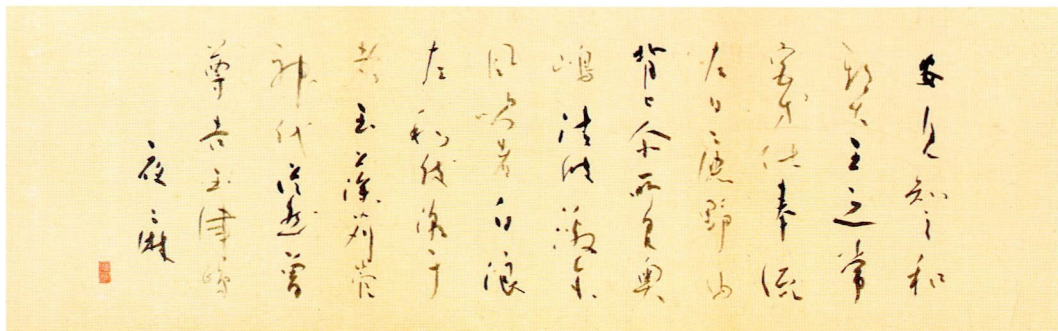 安見知之和
期大王之常
宮等仕奉流
左日鹿野由
背匕尓所見奥
嶋清波瀲尓
風吹者白浪
左和伎潮干
者玉藻苅管
神代従然曽
尊吉玉津嶋
夜麻